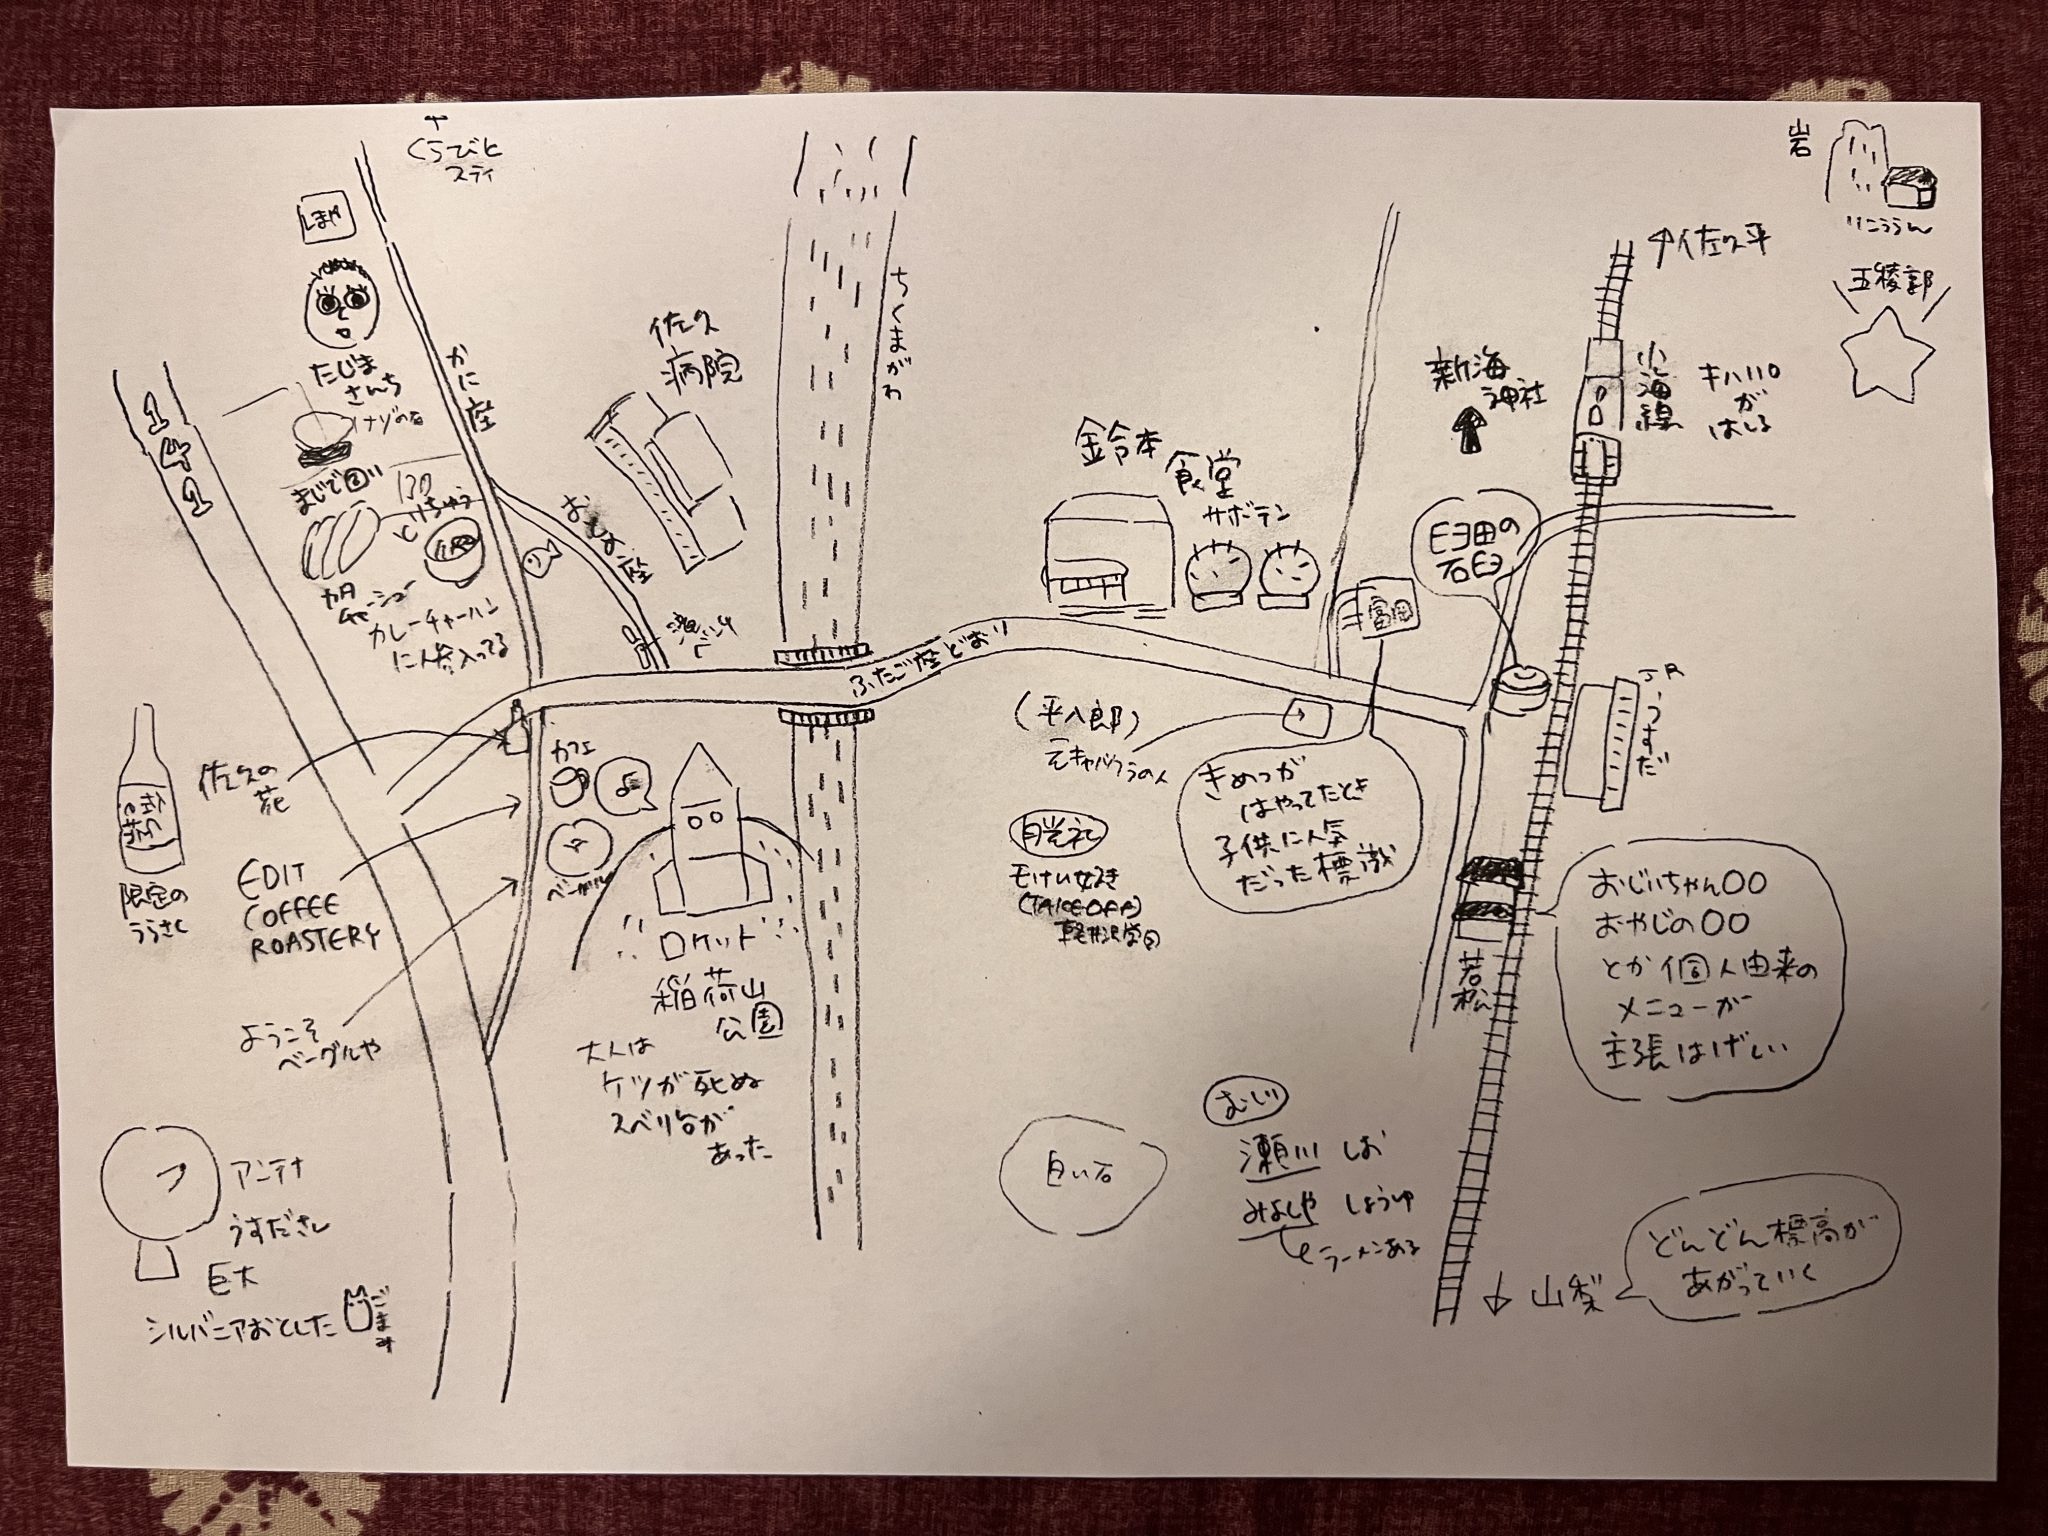 くらびと
ステイ
しまや
たじま
さんち
ナゾの石
まじで回り
カレーチャーハン
に人参入ってる
141
かに座
おとめ座
佐久
病院
ちくまがわ
ふたご座どおり
鈴本
食堂
サボテン
富岡
新海
神社
臼田の
石臼
↑佐久平
小海線
キハ110
が
はしる
岩
五稜郭
JR
うすだ
佐久の
花
限定の
うらさく
EDIT
COFFEE
ROASTERY
カフェ
ベーグル
ようこそ
ベーグルや
ロケット
稲荷山
公園
大人は
ケツが死ぬ
スベリ台が
あった
(平八郎)
きめつが
はやってたとき
子供に人気
だった標識
モけい好き
(TAKEOFF)
軽井沢学園
若松
おじいちゃん〇〇
おやじの〇〇
とか個人由来の
メニューが
主張はげしい
アンテナ
うすださん
巨大
シルバニアおとした
ごまみ
白い石
むじ
瀬川 しお
みよしや しょうゆ
ラーメンある
↓山梨
どんどん標高が
あがっていく